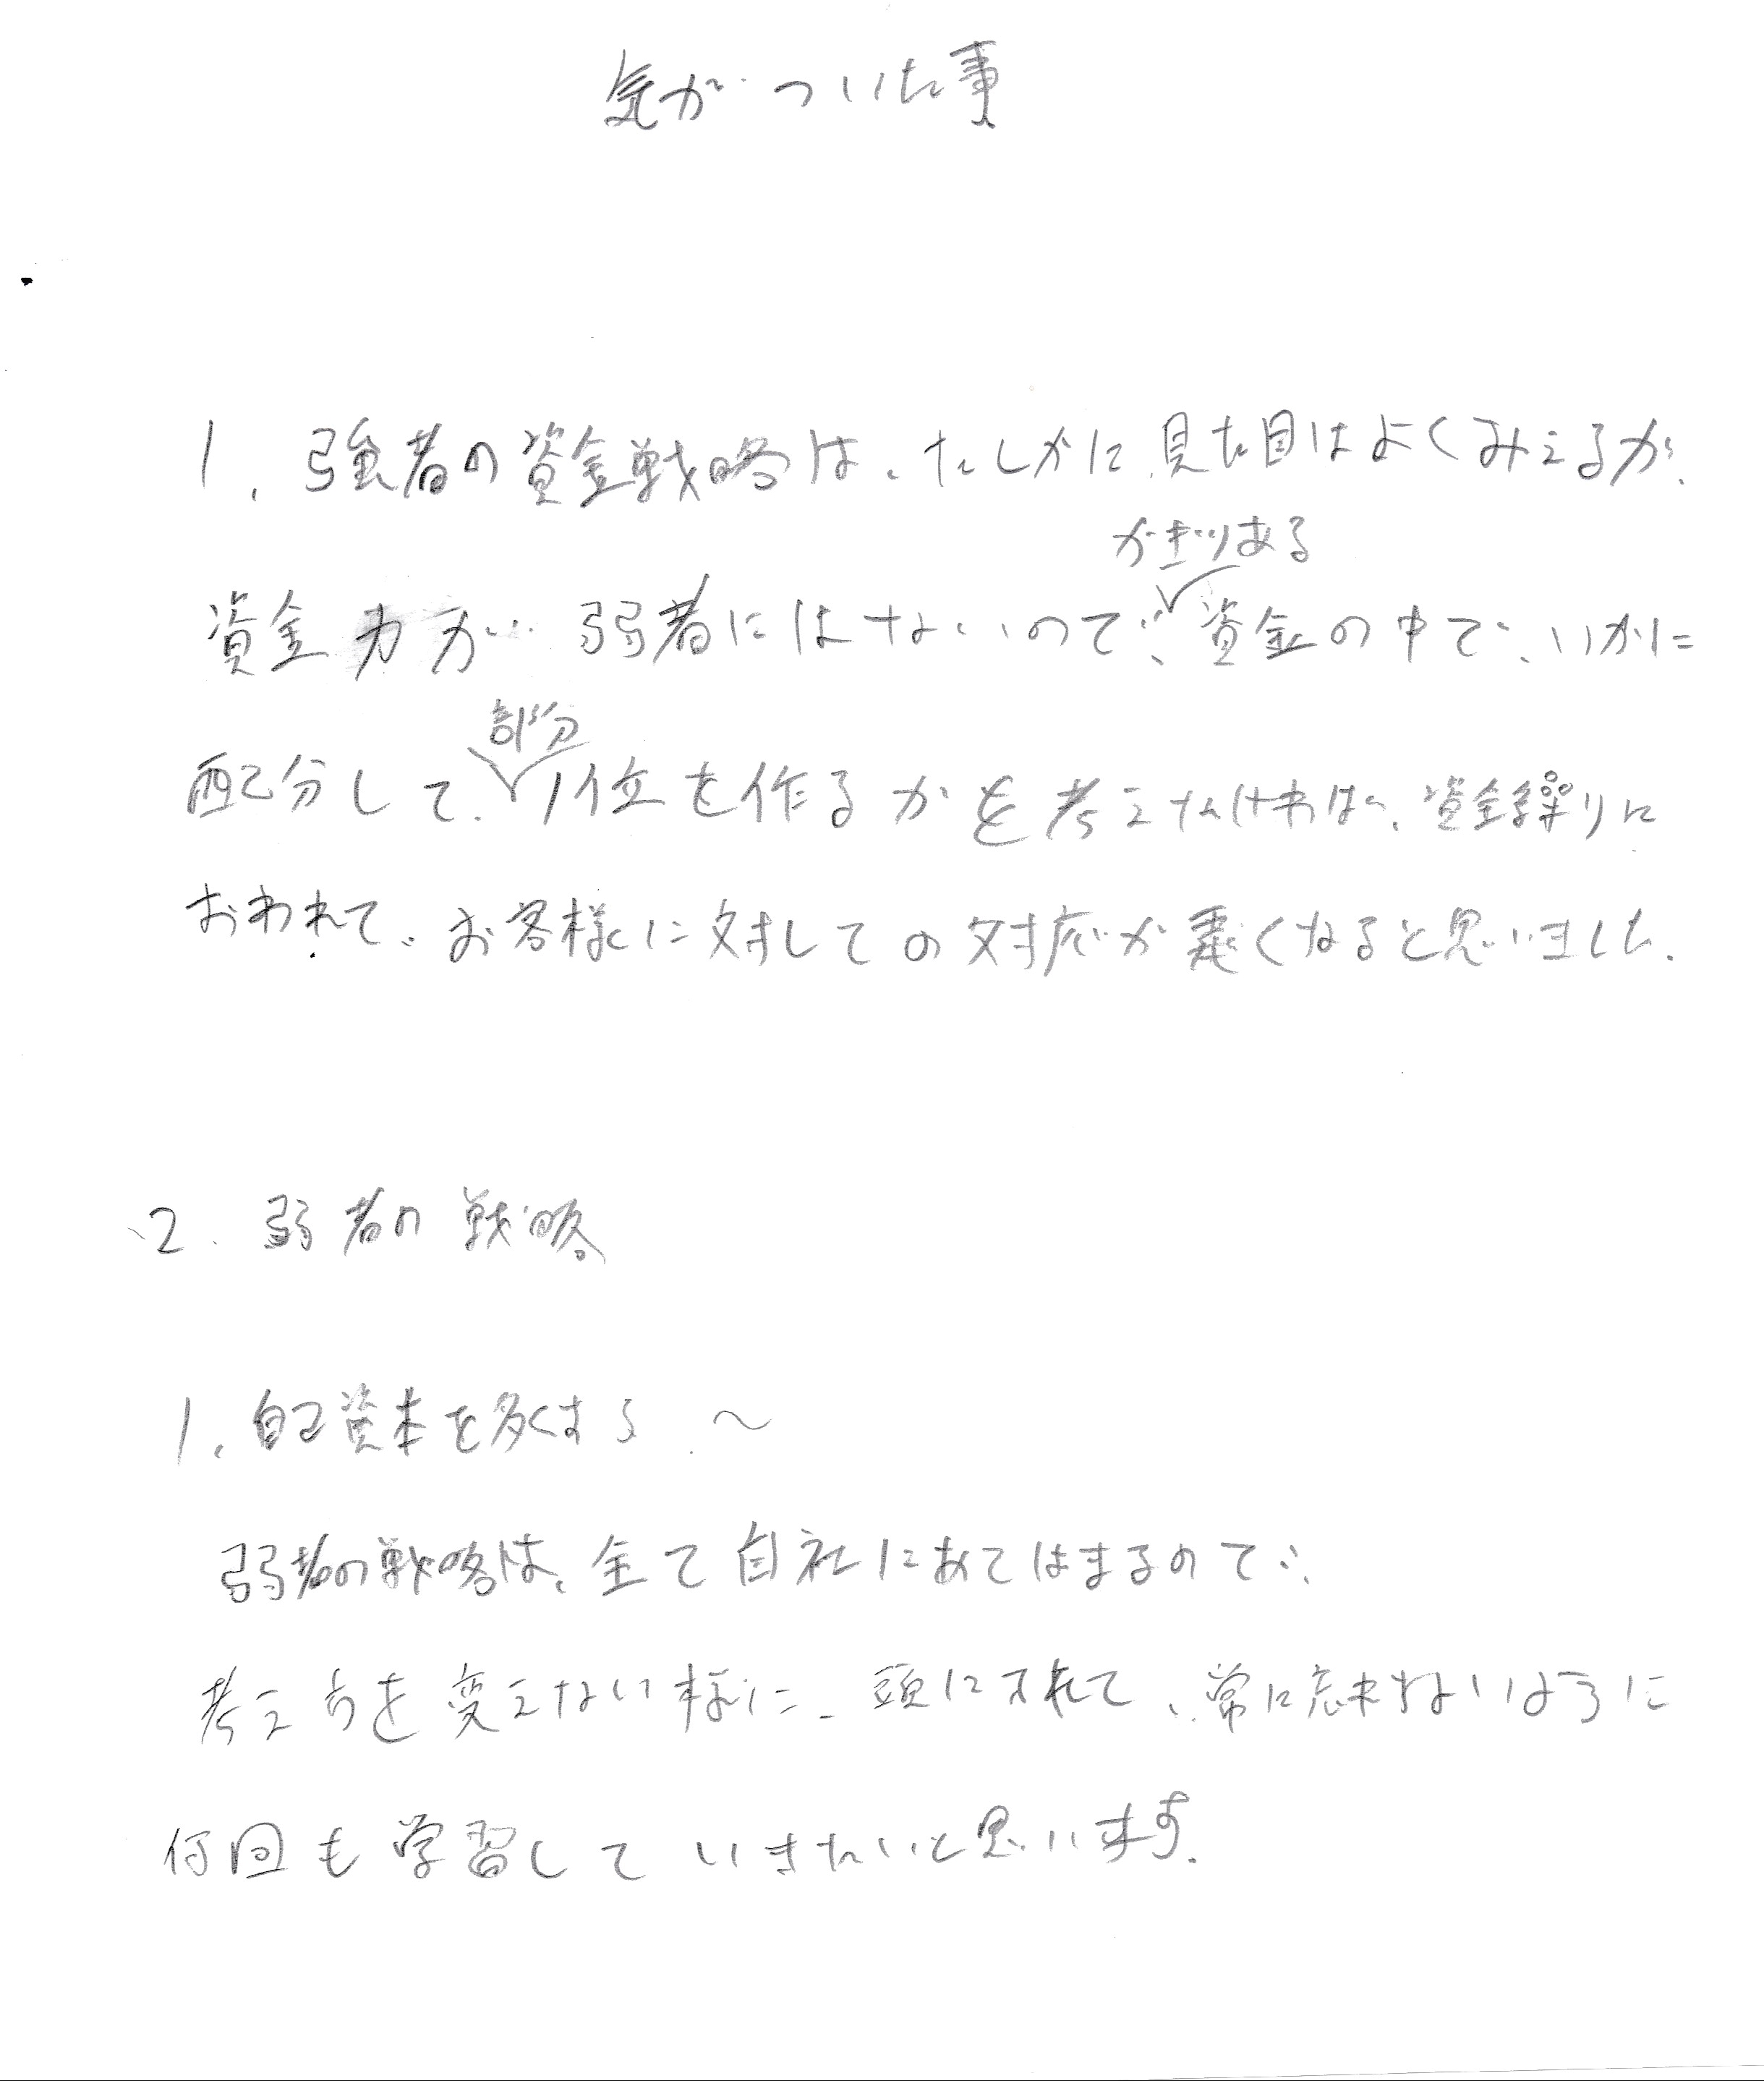 気がついた事
1. 強者の資金戦略は、たしかに見た目はよくみえるが、
かぎりある
資金力が弱者にはないので、資金の中で、いかに
部分
配分して、1位を作るかを考えなければ、資金繰りに
おわれて、お客様に対しての対応が悪くなると思いました。
2. 弱者の戦略
1. 自己資本を多くする 〜
弱者の戦略は、全て自社にあてはまるので
考え方を変えない様に、頭に入れて、常に忘れないように
何回も学習していきたいと思います。